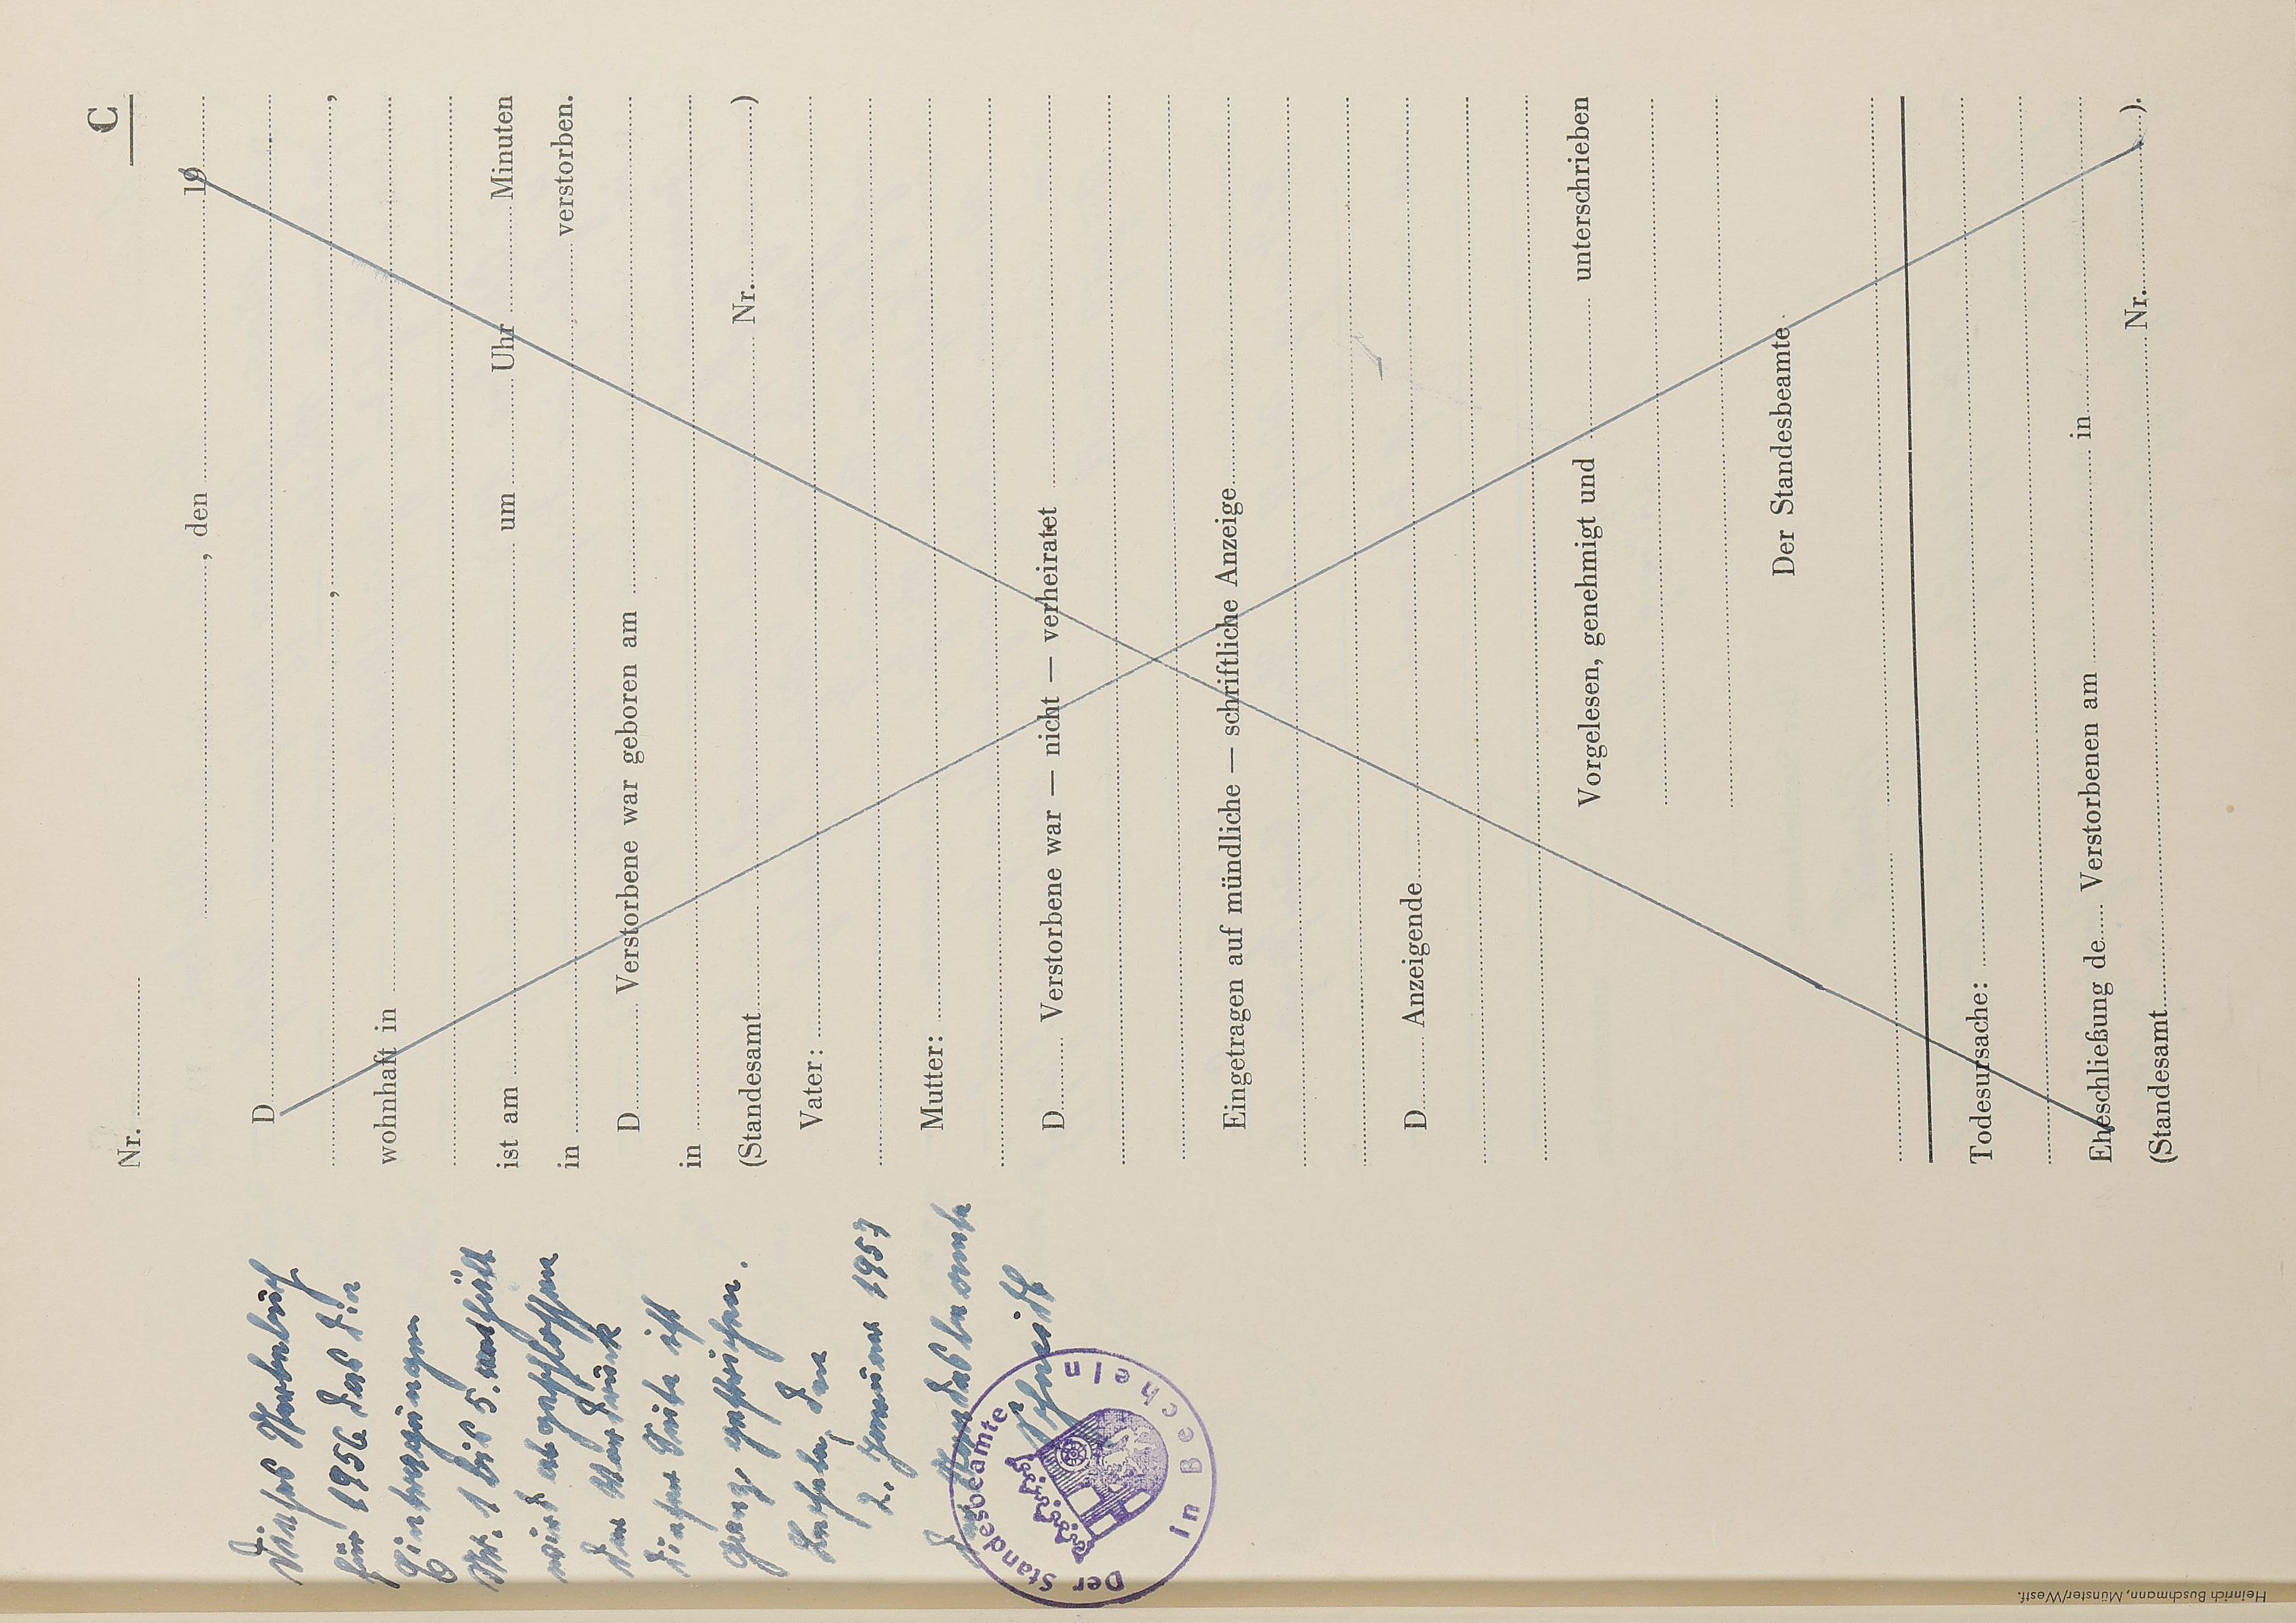 C
Nr.
, den 19
D
, ,
wohnhaft in
ist am um Uhr Minuten
in verstorben.
D Verstorbene war geboren am
in
(Standesamt Nr. )
Vater:
Mutter:
D Verstorbene war — nicht — verheiratet
Eingetragen auf mündliche — schriftliche Anzeige
D Anzeigende
Vorgelesen, genehmigt und unterschrieben
Der Standesbeamte
Todesursache:
Eheschließung de Verstorbenen am in
(Standesamt Nr. ).
Dieses Sterbebuch
für 1956 das die
Eintragungen
Nr. 1 bis 5. enthält
wird abgeschlossen
Der Vordruck
dieser Seite ist
ganz gestrichen.
Becheln, den
2. Januar 1957
Der Standesbeamte
Schmidt
Der Standesbeamte
in Becheln
Heinrich Buschmann, Münster/Westf.